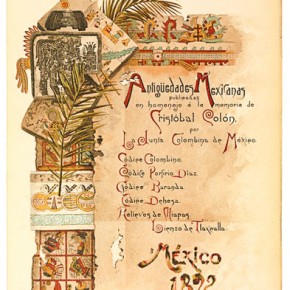 Antigüedades Mexicanas
publicadas
en homenaje á la memoria de
Cristóbal Colón.
por
La Junta Colombina de México.
Códice Colombino.
Códice Porfirio Diaz.
Códice Baranda.
Códice Dehesa.
Relieves de Chiapas.
Lienzo de Tlaxcalla.
México
1892